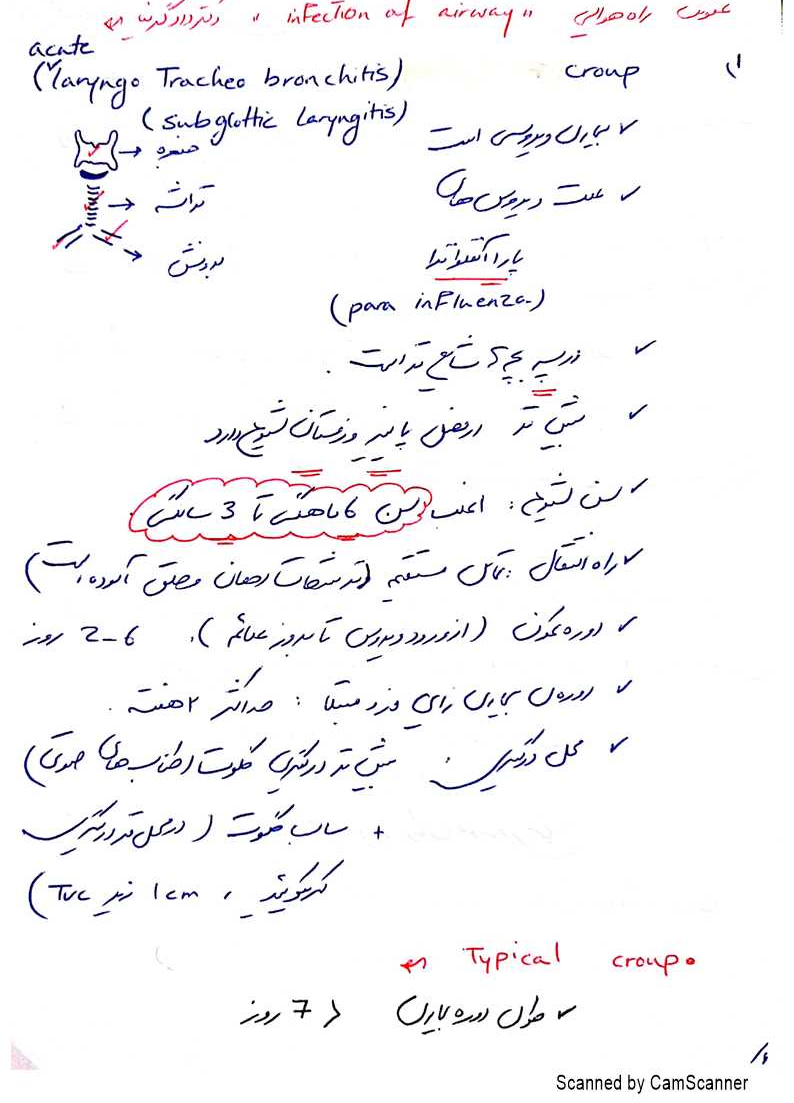 عفونت راه هوایی "infection of airway" دکتر دادگرنیا
۱) croup (acute laryngo Tracheo bronchitis)
(subglottic Laryngitis)
✓ بیماری ویروسی است
حنجره
✓ علت ویروس های
تراشه
پارا آنفلوانزا
برونش
(para influenza)
✓ در پسر بچه ها شایع تر است.
✓ بیش تر در فصل پاییز و زمستان شیوع دارد
✓ سن شیوع: اغلب سن 6 ماهگی تا 3 سالگی
✓ راه انتقال: تماس مستقیم (ترشحات دهان و حلق آلوده است)
✓ دوره کمون (از ورود ویروس تا بروز علائم). 2-6 روز
✓ دوره ی بیماری زایی فرد مبتلا: حداکثر ۲ هفته.
✓ محل درگیری: بیش تر درگیری گلوت (طناب های صوتی)
+ ساب گلوت (در محل
کریکوئید، 1cm زیر TVC)
Typical croup
✓ طول دوره بیماری < 7 روز
Scanned by CamScanner